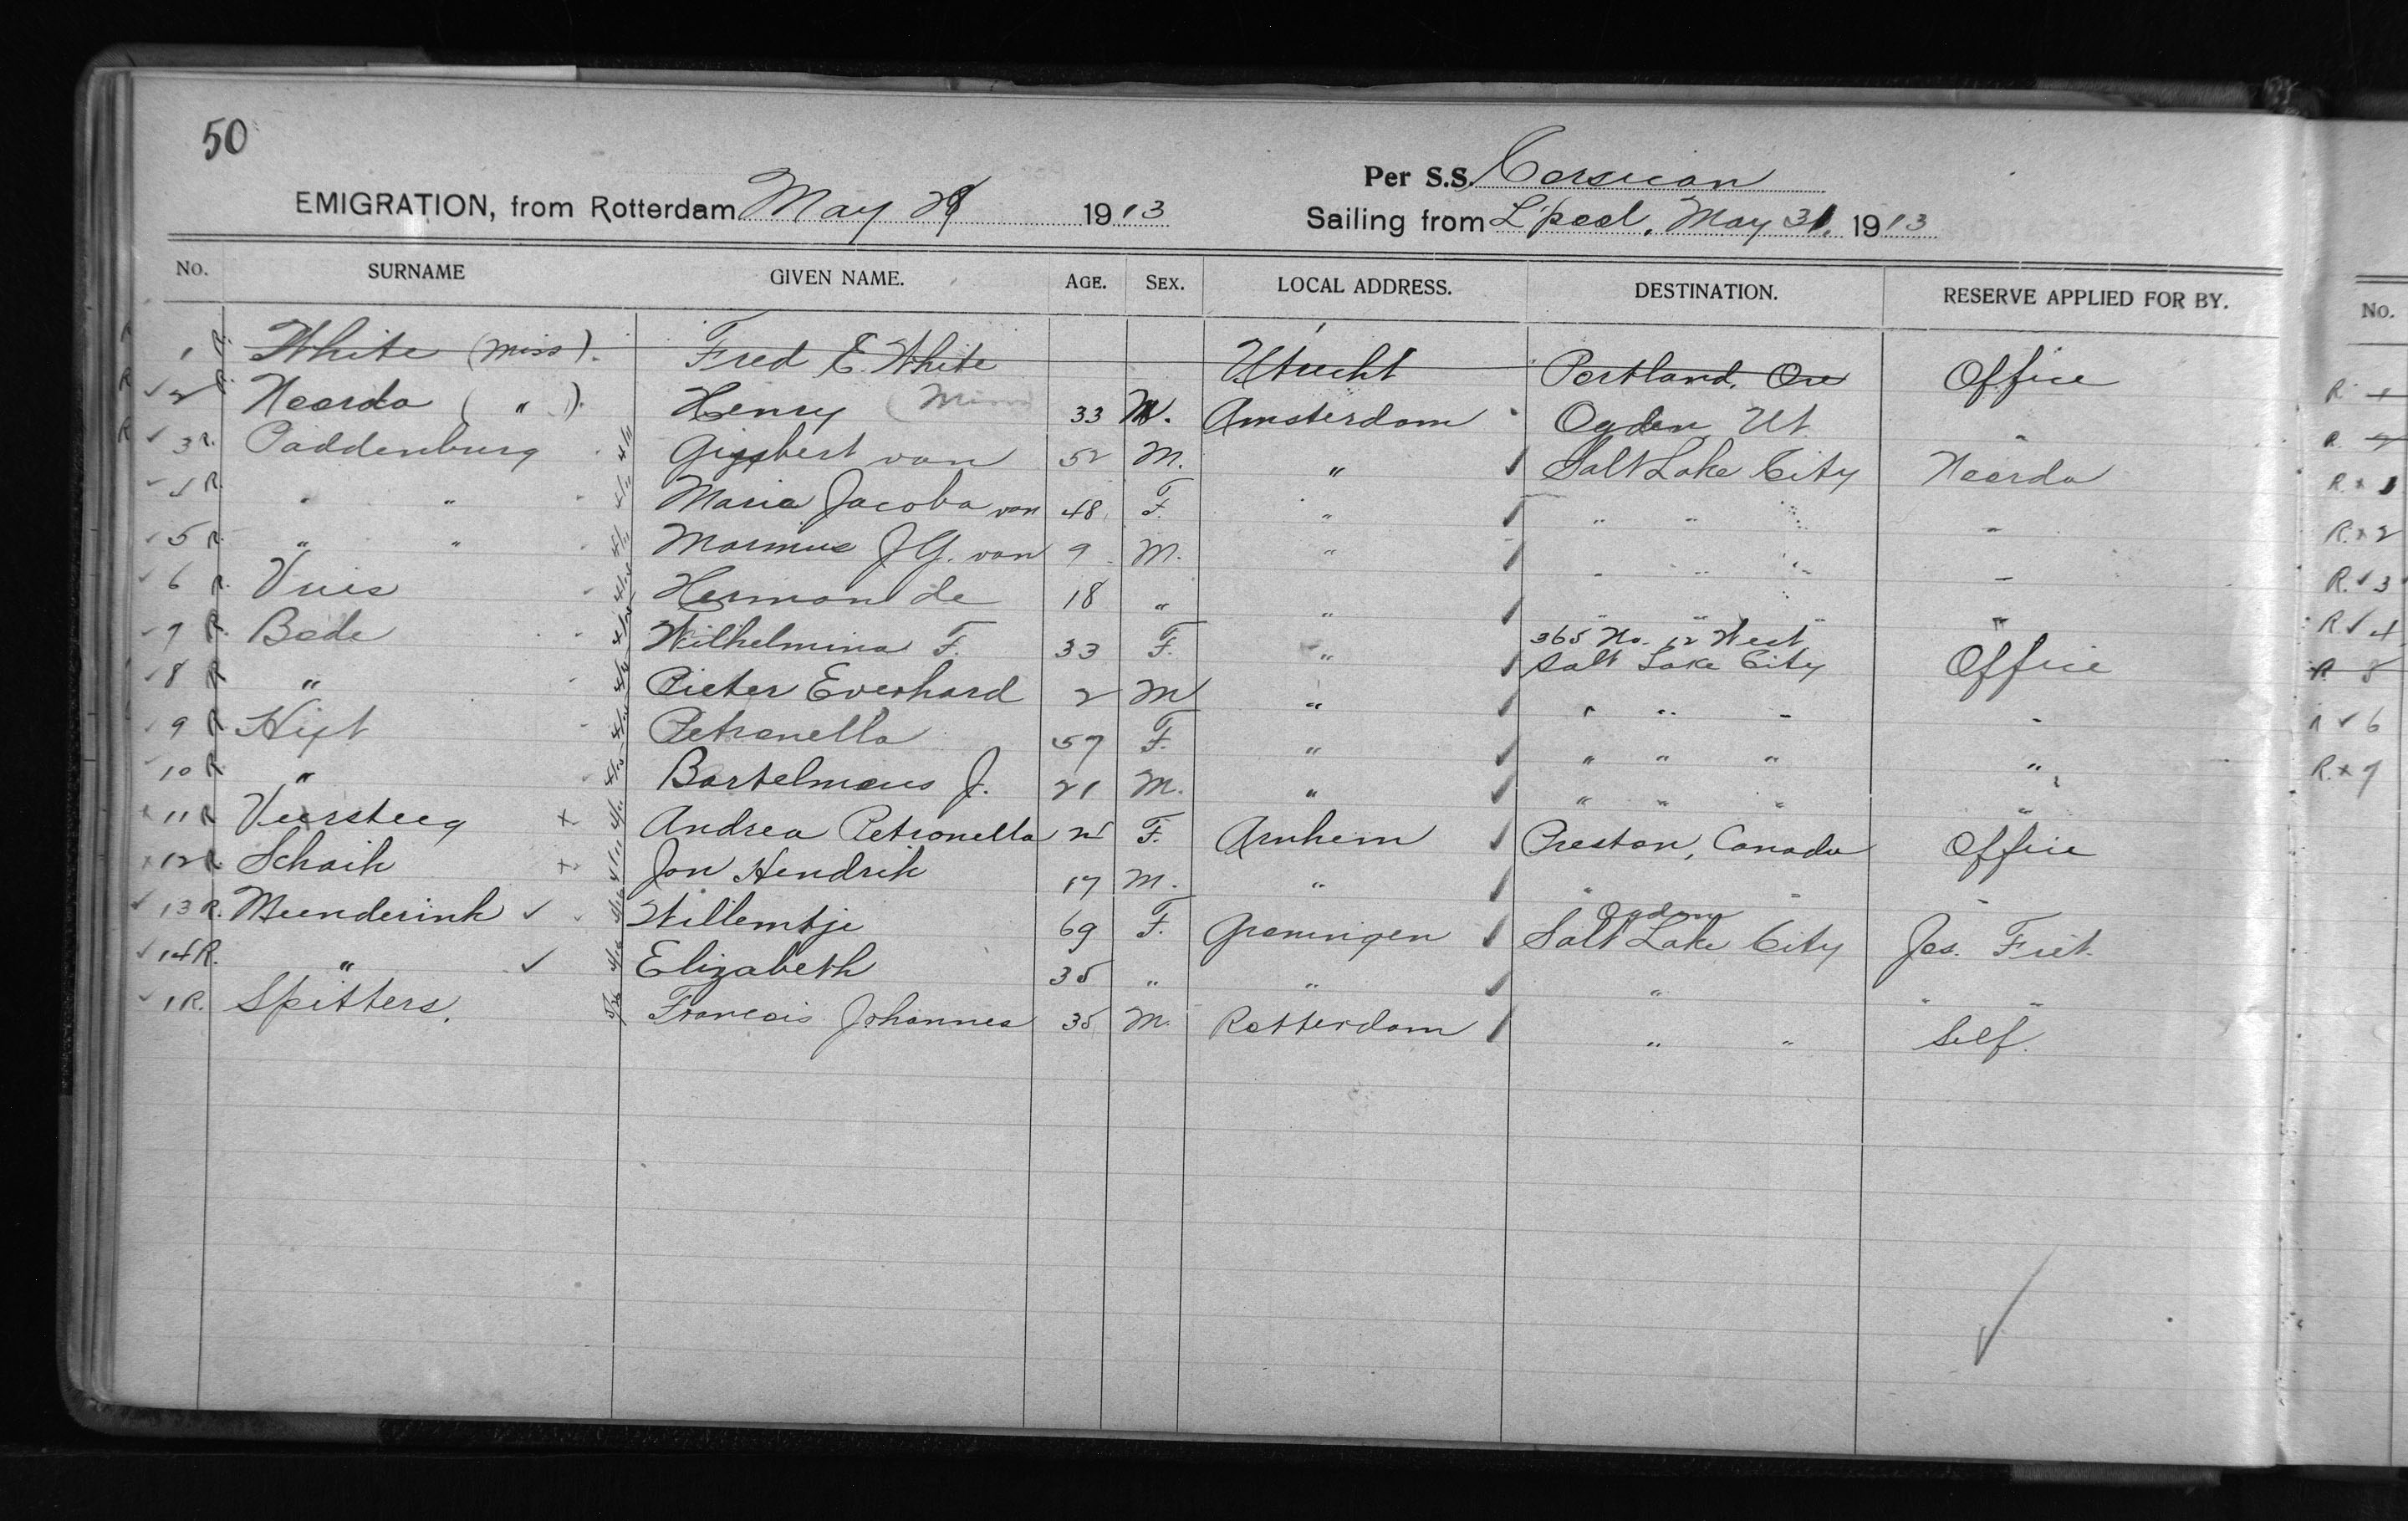 50
Per S.S. Corsican
EMIGRATION, from Rotterdam May 28 1913
Sailing from L'pool, May 31, 1913
No. SURNAME GIVEN NAME. AGE. SEX. LOCAL ADDRESS. DESTINATION. RESERVE APPLIED FOR BY. No.
1 R. White (Miss). Fred E. White Utrecht Portland, Ore Office
R ✓ 2 R. Neerda ( " ). Henry (Miss) 33 M. Amsterdam Ogden Ut " R. 1
R ✓ 3 R. Paddenburg Gijsbert van 52 M. " Salt Lake City Neerda R.
✓ 4 R. " " Maria Jacoba van 48 F. " " " " " R. x 1
✓ 5 R. " " Marinus J.G. van 9 M. " " " " " R. x 2
✓ 6 R. Vries Herman de 18 " " " " " " R. ✓ 3
✓ 7 R. Bode Wilhelmina F. 33 F. " 365 No. 12 West Salt Lake City Office R ✓ 4
✓ 8 R " Pieter Everhard 2 M " " " " " R 5
✓ 9 R Hijt Petronella 57 F. " " " " " R ✓ 6
10 R. " Bartelmeus J. 21 M. " " " " " R. x 7
x 11 R Versteeg x Andrea Petronella F. Arnhem Preston, Canada Office
x 12 R Schaik x Jan Hendrik 17 M. " " " "
✓ 13 R. Meenderink ✓ Willemtje 69 F. Groningen Ogden Salt Lake City Jos. Fiet.
✓ 14 R. " ✓ Elizabeth 35 " " " " "
✓ 1 R. Spitters. Francois Johannes 35 M. Rotterdam " " Self.